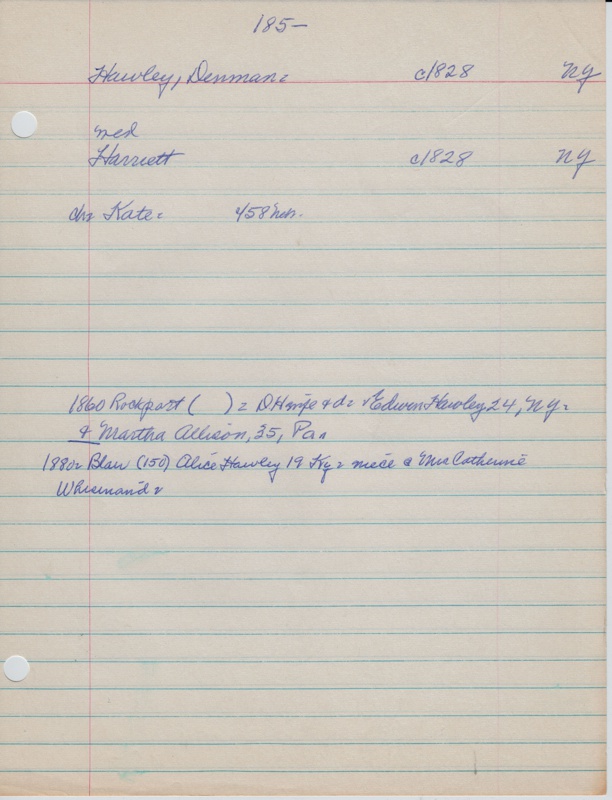 185-
Hawley, Denman= c1828 NY
med
Harriett c1828 NY
ch= Kate=
1860 Rockport ( ) = D H wife & d= & Edwin Hawley 24, NY=
& Martha Allison, 35, Pa=
1880= Blair (150) Alice Hawley 19 Ky= niece Mrs Catherine
Whisinand=